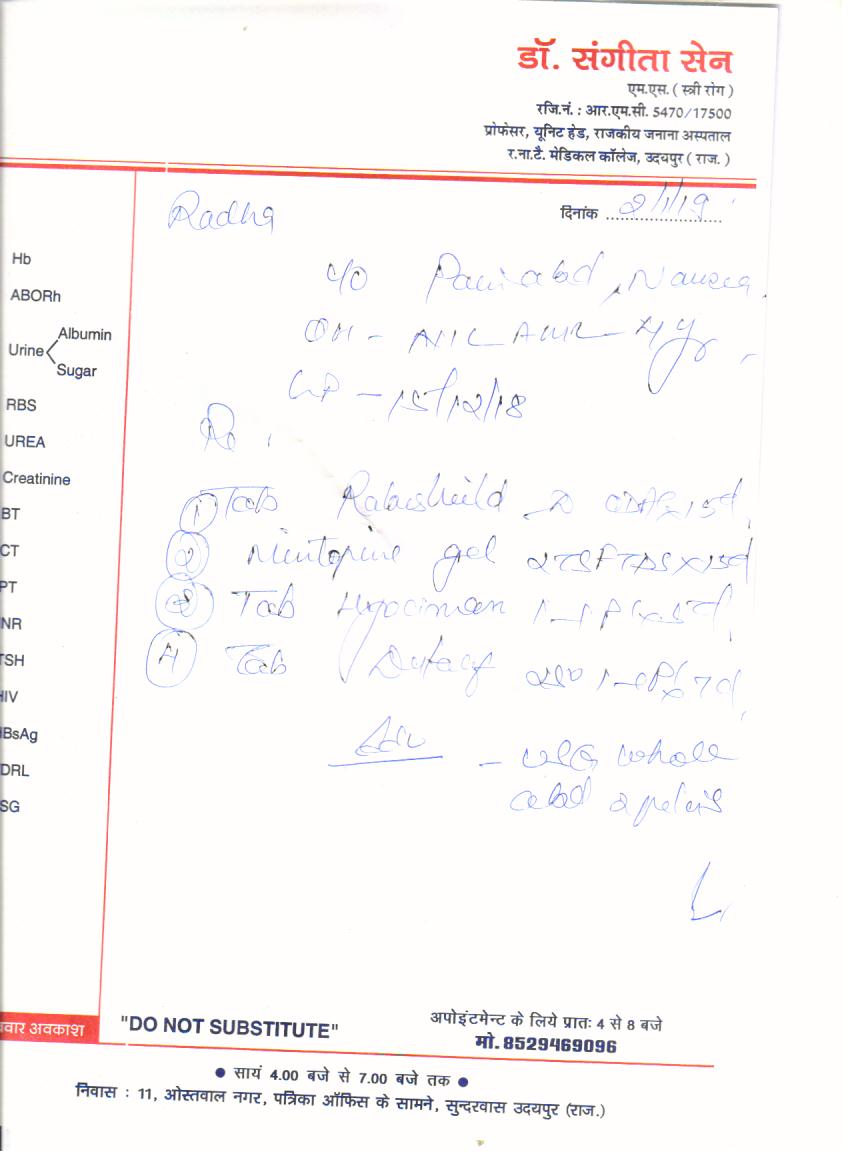 डॉ. संगीता सेन
एम.एस. ( स्त्री रोग )
रजि.नं. : आर.एम.सी. 5470/17500
प्रोफेसर, यूनिट हेड, राजकीय जनाना अस्पताल
र.ना.टै. मेडिकल कॉलेज, उदयपुर ( राज. )
Radha
दिनांक 2/1/19
Hb
ABORh
Urine Albumin
Sugar
RBS
UREA
Creatinine
BT
CT
PT
NR
TSH
HIV
HBsAg
DRL
SG
c/o Pain abd, Nausea.
OH - 
LMP - 15/12/18
Rx
1 Tab Rabeshield D
2 gel 2TSF TDS x 15d
3 Tab
4 Tab
Adv - USG whole
abd & pelvis
वार अवकाश
"DO NOT SUBSTITUTE"
अपोइंटमेन्ट के लिये प्रातः 4 से 8 बजे
मो. 8529469096
● सायं 4.00 बजे से 7.00 बजे तक ●
निवास : 11, ओस्तवाल नगर, पत्रिका ऑफिस के सामने, सुन्दरवास उदयपुर (राज.)